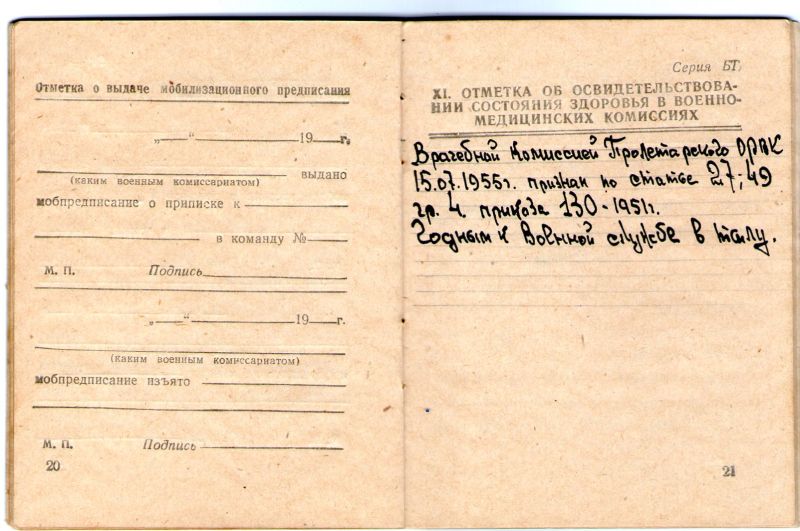 Отметка о выдаче мобилизационного предписания
„—“ 19 г.
выдано
(каким военным комиссариатом)
мобпредписание о приписке к
в команду №
М. П. Подпись
„—“ 19 г.
(каким военным комиссариатом)
мобпредписание изъято
М. П. Подпись
20
Серия БТ
XI. ОТМЕТКА ОБ ОСВИДЕТЕЛЬСТВОВА-
НИИ СОСТОЯНИЯ ЗДОРОВЬЯ В ВОЕННО-
МЕДИЦИНСКИХ КОМИССИЯХ
Врачебной Комиссией Пролетарского ОРВК
15.07.1955г. признан по статье 27;49
гр. 4 приказа 130-1951г.
Годным к Военной службе в тылу.
21